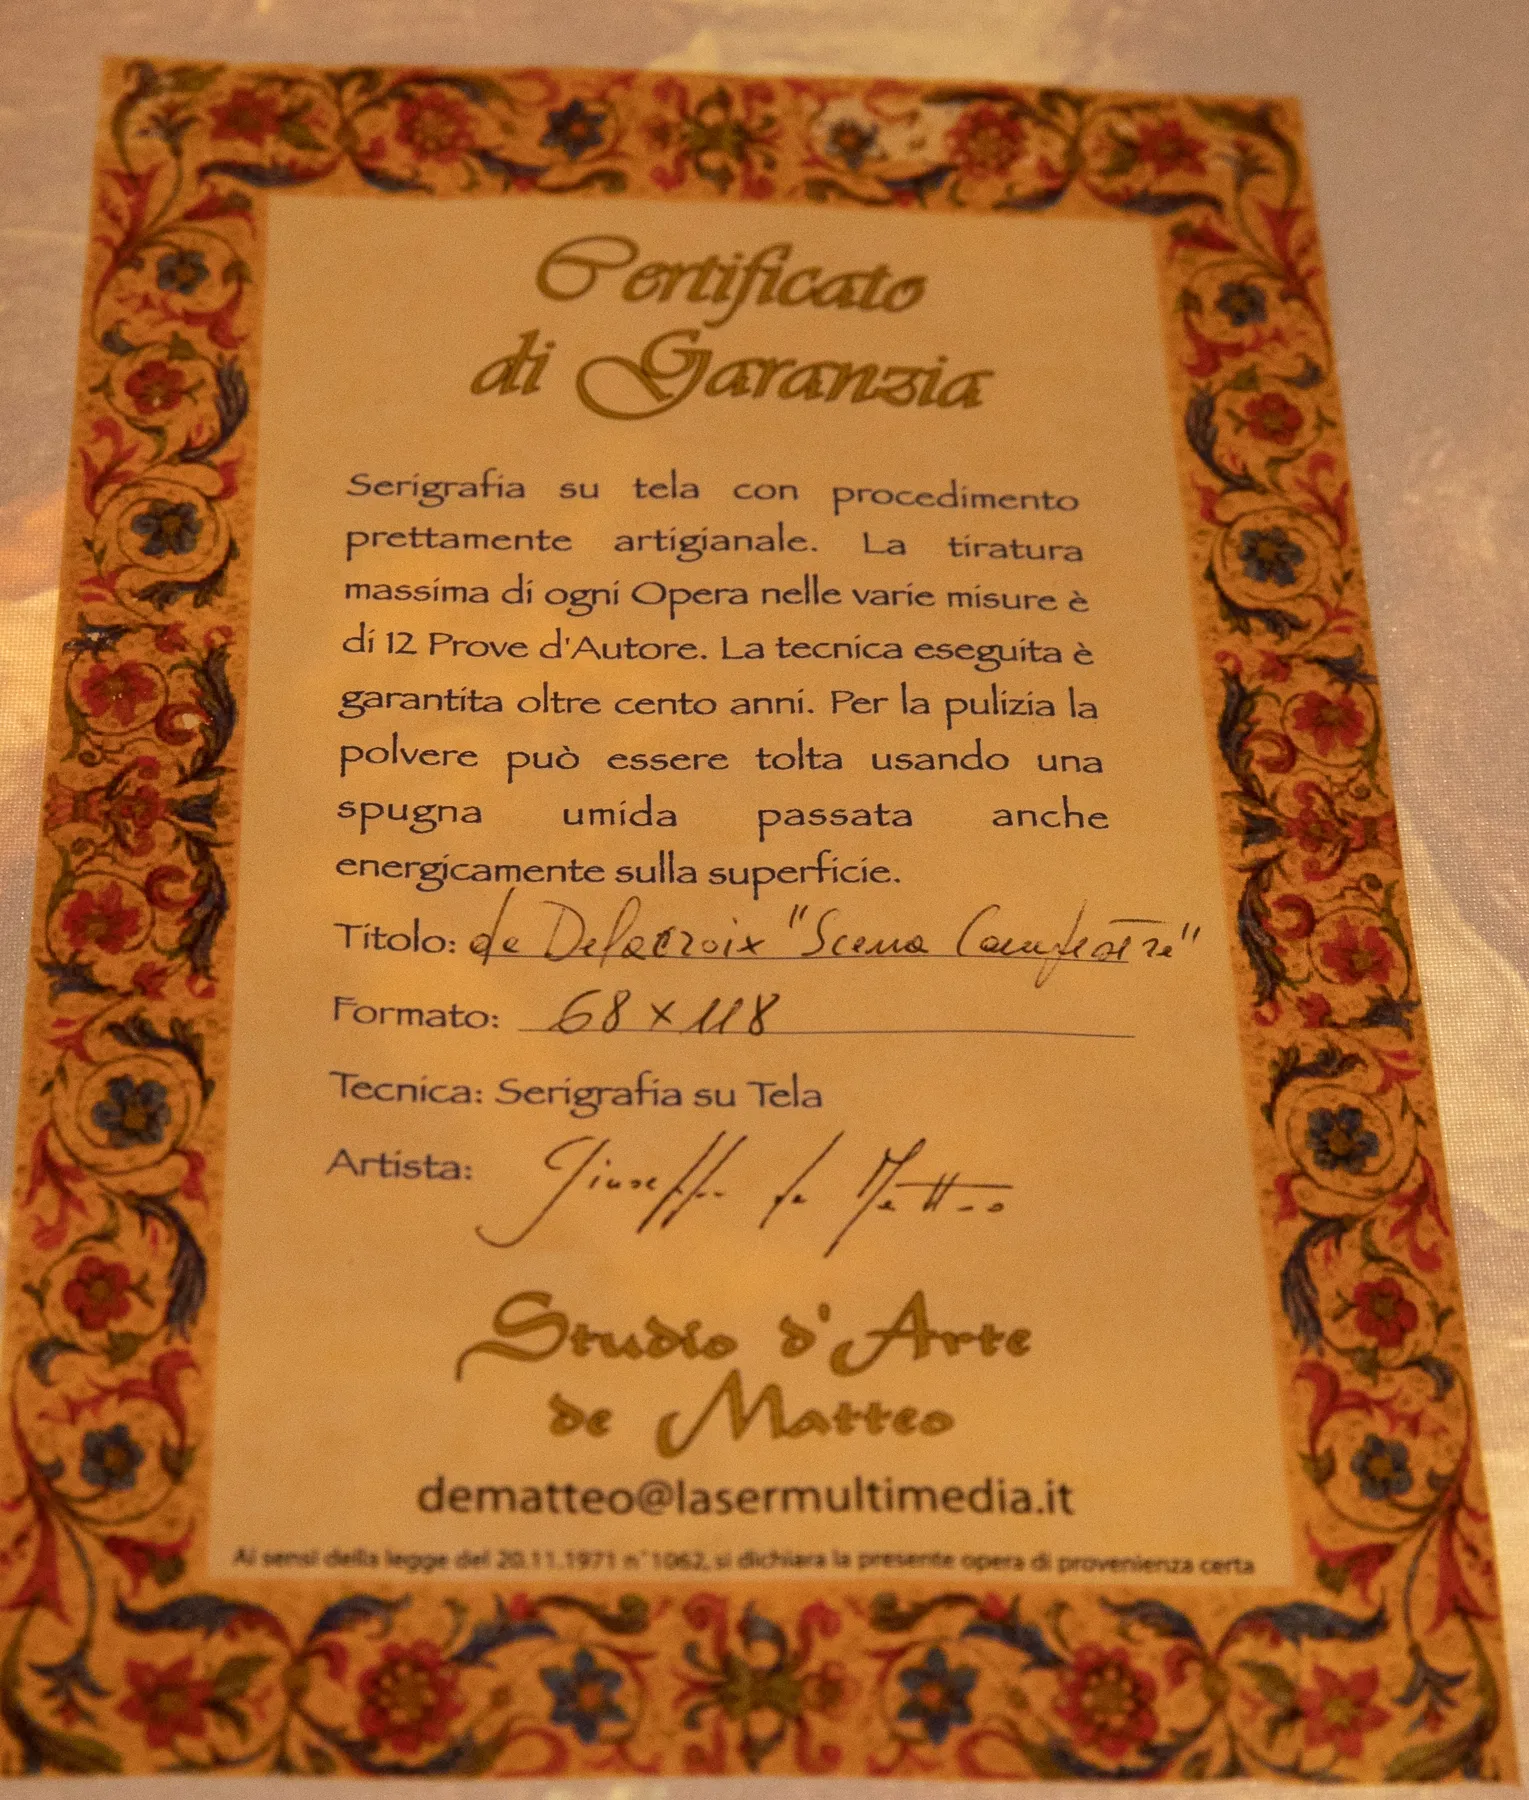 Certificato
di Garanzia
Serigrafia su tela con procedimento
prettamente artigianale. La tiratura
massima di ogni Opera nelle varie misure è
di 12 Prove d'Autore. La tecnica eseguita è
garantita oltre cento anni. Per la pulizia la
polvere può essere tolta usando una
spugna umida passata anche
energicamente sulla superficie.
Titolo: de Delacroix "Scena Campestre"
Formato: 68 x 118
Tecnica: Serigrafia su Tela
Artista: Giuseppe de Matteo
Studio d'Arte
de Matteo
dematteo@lasermultimedia.it
Ai sensi della legge del 20.11.1971 n°1062, si dichiara la presente opera di provenienza certa